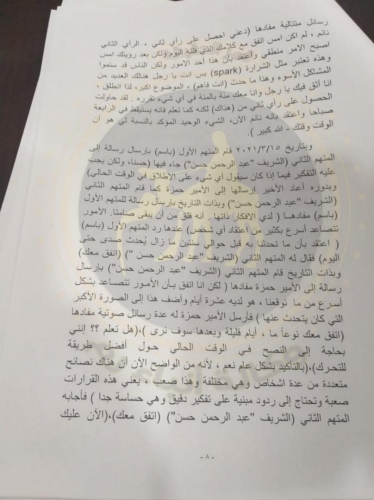 رسائل متتالية مفادها (دعني احصل على رأي ثاني ، الرأي الثاني
نائم ، لم اكن امس اتفق مع كلامك الذي قلته اليوم ولكن بعد رويتك امس
اصبح الامر منطقي واعتقد بأن هذا أحد الامور ولكن الناس قد سئموا
وهذه تعتبر مثل الشرارة (spark) بس انت يا رجل هنالك العديد من
المشاكل الأسوء وهذا ما حدث (انت فاهم) ، الموضوع اكبر، لذا انطلق ،
انا أثق فيك يا رجل وانا معك مئة بالمئة في أي شيء تقرره . لقد حاولت
الحصول على رأي ثاني من (هناك) لكنه كما تعلم فانه يستيقظ في الرابعة
صباحا واعتقد بانه نائم الآن، الشيء الوحيد المؤكد بالنسبة لي هو أن
الوقت وقتك - الله كبير ) .
وبتاريخ ٢٠٢١/٣/١٥ قام المتهم الأول (باسم) بإرسال رسالة إلى
المتهم الثاني (الشريف "عبد الرحمن حسن") جاء فيها (حسنا، ولكن يجب
عليه التفكير فيما إذا كان سيقول أي شيء على الإطلاق في الوقت الحالي)
وبدوره أعاد الأخير إرسالها إلى الأمير حمزة كما قام المتهم الثاني
(الشريف "عبد الرحمن حسن") وبذات التاريخ بإرسال رسالة للمتهم الأول
(باسم) مفادهـا ( لدي الأفكار ذاتها . انه قلق من أن يبقى صامتا. الأمور
تتصاعد أسرع بكثير من اعتقاد أي شخص) عندها رد المتهم الأول (باسم)
( اعتقد بأن ما تحدثنا به قبل حوالي سنتين ما زال يُحدث صدى حتى
اليوم) فقال له المتهم الثاني (الشريف "عبد الرحمن حسن ") (اتفق معك)
وبذات التاريخ قام المتهم الثاني (الشريف "عبد الرحمن حسن") بإرسال
رسالة إلى الأمير حمزة مفادها ( لكن انا اتفق بـأن الأمـور تتصـاعد بشـكل
أسرع من ما توقعنا ، هو لديه عشرة أيام وأضف هذا إلى الصورة الأكبر
التي كان يتحدث عنها ) فأرسل الأمير حمزة له عدة رسائل صوتية مفادها
(اتفق معك نوعاً ما ، أيام قليلة وبعدها سوف نرى )،(هل تعلم ؟؟ إنني
بحاجة إلى النصح في الوقت الحالي حول أفضل طريقة
للتحرك)،(بالتأكيد بشكل عام نعم ، لأنه من الواضح الآن أن هناك نصائح
متعددة من عدة اشخاص وهي مختلفة وهذا صعب ، يعني هذه القرارات
صعبة وتحتاج إلى ردود مبنية على تفكير دقيق وهي حساسة جدا ) فأجابه
المتهم الثاني (الشريف "عبد الرحمن حسن") (اتفق معك)،(الآن عليك
- ٨ -